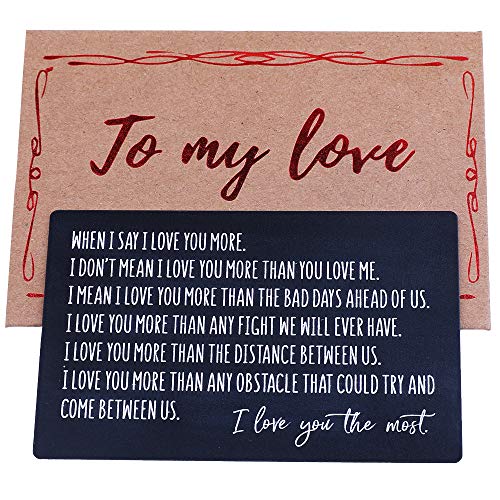 To my love
WHEN I SAY I LOVE YOU MORE.
I DON'T MEAN I LOVE YOU MORE THAN YOU LOVE ME.
I MEAN I LOVE YOU MORE THAN THE BAD DAYS AHEAD OF US.
I LOVE YOU MORE THAN ANY FIGHT WE WILL EVER HAVE.
I LOVE YOU MORE THAN THE DISTANCE BETWEEN US.
I LOVE YOU MORE THAN ANY OBSTACLE THAT COULD TRY AND
COME BETWEEN US. I love you the most.